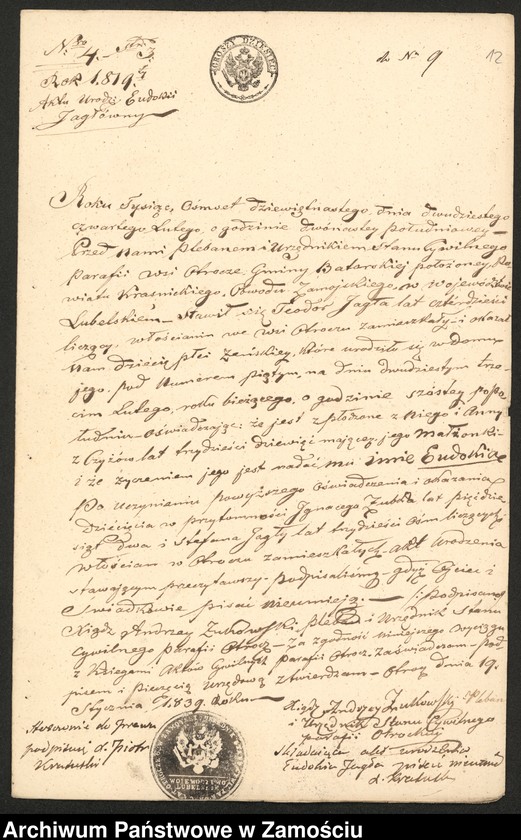 Nro 4.
GROSZY DZIESIĘĆ
do Nro 9
12
Rok 1819.
Aktu Urodz: Eudokii
Jagłówny
Roku Tysiąc Ośmset dziewiętnastego dnia dwudziestego
czwartego Lutego o godzinie dwónastey południowey
Przed Nami Plebanem i Urzędnikiem Stanu Cywilnego
Parafii wsi Otrocze Gminy Batorskiej położoney Po-
wiatu Krasnickiego Obwodu Zamojskiego, w Wojewódz
Lubelskiem Stawił się Teodor Jagła lat czterdzieści
liczący, włościanin we wsi Otroczu zamieszkały i okazał
Nam dziecię płci Zeńskiey, które urodziło się w Domu
jego pod Numerem piątym, na dniu dwudziestym trze-
cim Lutego, roku bieżącego, o godzinie szóstey popo-
łudniu oświadczając: że jest z płożone z Niego i Anny
z Czyżów lat trydzieści dziewięć maiącey, jego Małżonki
i że życzeniem jego jest nadać mu imie Eudokia
Po Uczynieniu powyższego Oświadczenia i okazania
Dziecięcia w przytomności Ignacego Zubka lat pięćdzie
siąt dwa i Stefana Jagły lat trydzieści ośm liczących
włościan w Otroczu zamieszkałych akt Urodzenia
stawającym przeczytawszy Podpisaliśmy gdyż Ojciec i
Swiadkowie pisać nieumieją. podpisano
Xiądz Andrzey Zukowski Pleban i Urzędnik Stanu
Cywilnego Parafii Otrocz za zgodność niniejszego wyciągu
z Księgami Aktów Cywilnych Parafii Otrocz. zaświadczam pod
pisem i Pieczęcią Urzędową stwierdzam Otrocz dnia 19.
Stycznia 1839. Roku
Xiądz Andrzey Zukowski Pleban
i Urzędnik Stanu Cywilnego
parafii Otrockiey
Stosownie do prawa
podpisu d. Piotr
składająca akt urodzenia
Eudokia Jagła pisać nieumie
WOJEWODZTWO
LUBELSKIE
Archiwum Państwowe w Zamościu